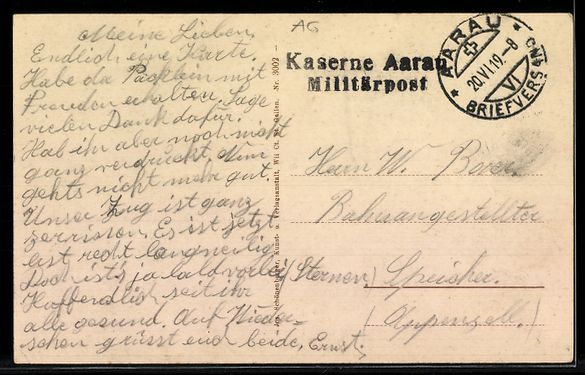 Meine Lieben,
Endlich eine Karte.
Habe da Päcklein mit
Freuden erhalten. Sage
vielen Dank dafür.
Hab ihr aber noch nicht
ganz verdrückt, Nun
gehts nicht mehr gut.
Unser Zug ist ganz
zerrissen. Es ist jetzt
erst recht langweilig
Doch ist's ja bald vorbei
Hoffendlich seit ihr
alle gesund. Auf Wieder-
sehen grüsst euch beide, Ernst.
AG
Kaserne Aarau
Militärpost
AARAU
20.VI.19.-8
VI
BRIEFVERSAND
Nr. 3002 -
Kunst- u. Verlagsanstalt, Wil Ct. St. Gallen.
Herrn W.
Bahnangestellter
(Sternen) Speicher.
(Appenzell.)